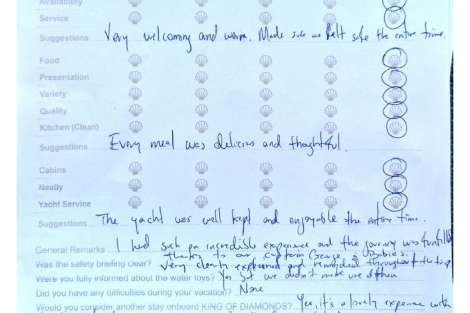 Availability
Service
Suggestions Very welcoming and warm. Made sure we felt safe the entire time.
Food
Presentation
Variety
Quality
Kitchen (Clean)
Suggestions Every meal was delicious and thoughtful.
Cabins
Neatly
Yacht Service
Suggestions The yacht was well kept and enjoyable the entire time.
General Remarks I had such an incredible experience and the journey was
thanks to our captain George &
Was the safety briefing clear? Very clearly explained and throughout the trip
Were you fully informed about the water toys? Yes but we didn't make use of them
Did you have any difficulties during your vacation? None
Would you consider another stay onboard KING OF DIAMONDS? Yes, it's a lovely experience with